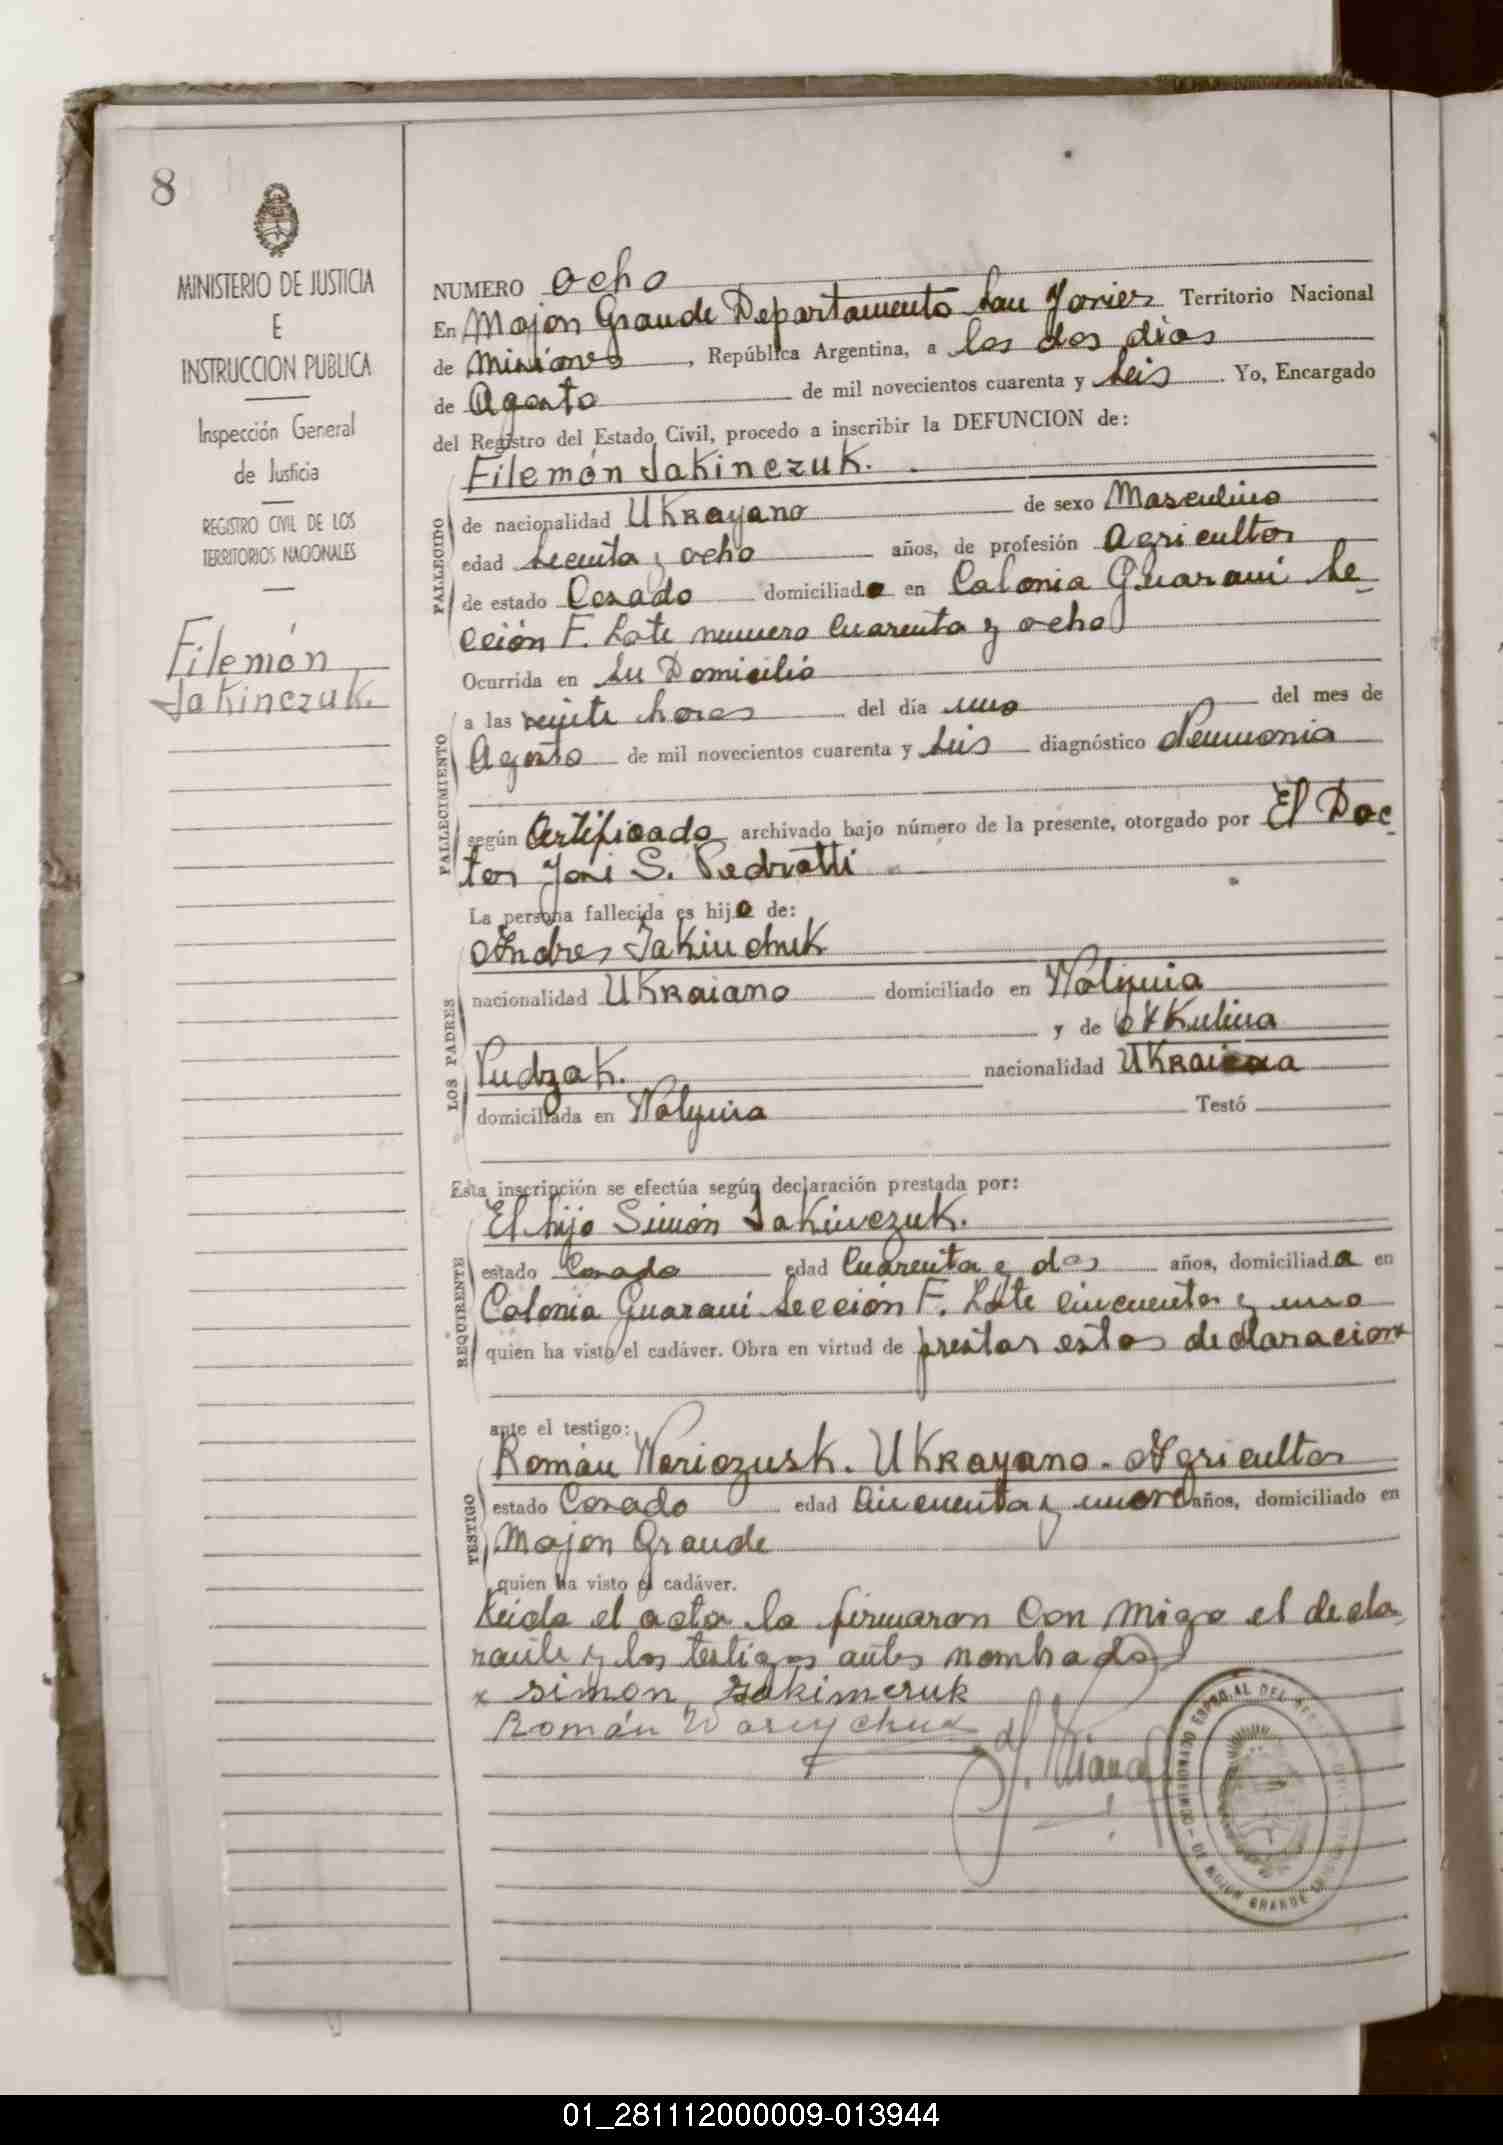 8
MINISTERIO DE JUSTICIA
E
INSTRUCCION PUBLICA
Inspección General
de Justicia
REGISTRO CIVIL DE LOS
TERRITORIOS NACIONALES
Filemón
Jakinczuk.
NUMERO ocho
En Mojon Grande Departamento San Javier Territorio Nacional
de Misiones, República Argentina, a los dos dias
de Agosto de mil novecientos cuarenta y seis. Yo, Encargado
del Registro del Estado Civil, procedo a inscribir la DEFUNCION de:
Filemón Jakinczuk.
FALLECIDO
de nacionalidad UKRayano de sexo Masculino
edad secenta y ocho años, de profesión Agricultor
de estado Casado domiciliado en Colonia Guarani Se-
cción F. Lote numero cuarenta y ocho
FALLECIMIENTO
Ocurrida en su Domicilio
a las veinte horas del día uno del mes de
Agosto de mil novecientos cuarenta y seis diagnóstico Neumonia
según Certificado archivado bajo número de la presente, otorgado por El Doc-
tor José S. Pedrotti
La persona fallecida es hijo de:
LOS PADRES
Andres Jakinchuk
nacionalidad UKRaiano domiciliado en Wolynia
y de Akulina
Pudzak. nacionalidad UKRaiana
domiciliada en Wolynia Testó
Esta inscripción se efectúa según declaración prestada por:
REQUIRENTE
El hijo Simón Jakinczuk.
estado Casado edad cuarenta y dos años, domiciliada en
Colonia Guarani Sección F. Lote cincuenta y uno
quien ha visto el cadáver. Obra en virtud de prestar estas declaracion
ante el testigo:
TESTIGO
Román Wariozusk. UKRayano. Agricultor
estado Casado edad cincuenta y nueve años, domiciliado en
Mojon Grande
quien ha visto el cadáver.
Leida el acta la firmaron con migo el decla-
rante y los testigos antes nombrado
x simon Jakimcruk
Román Warychuk
01_281112000009-013944